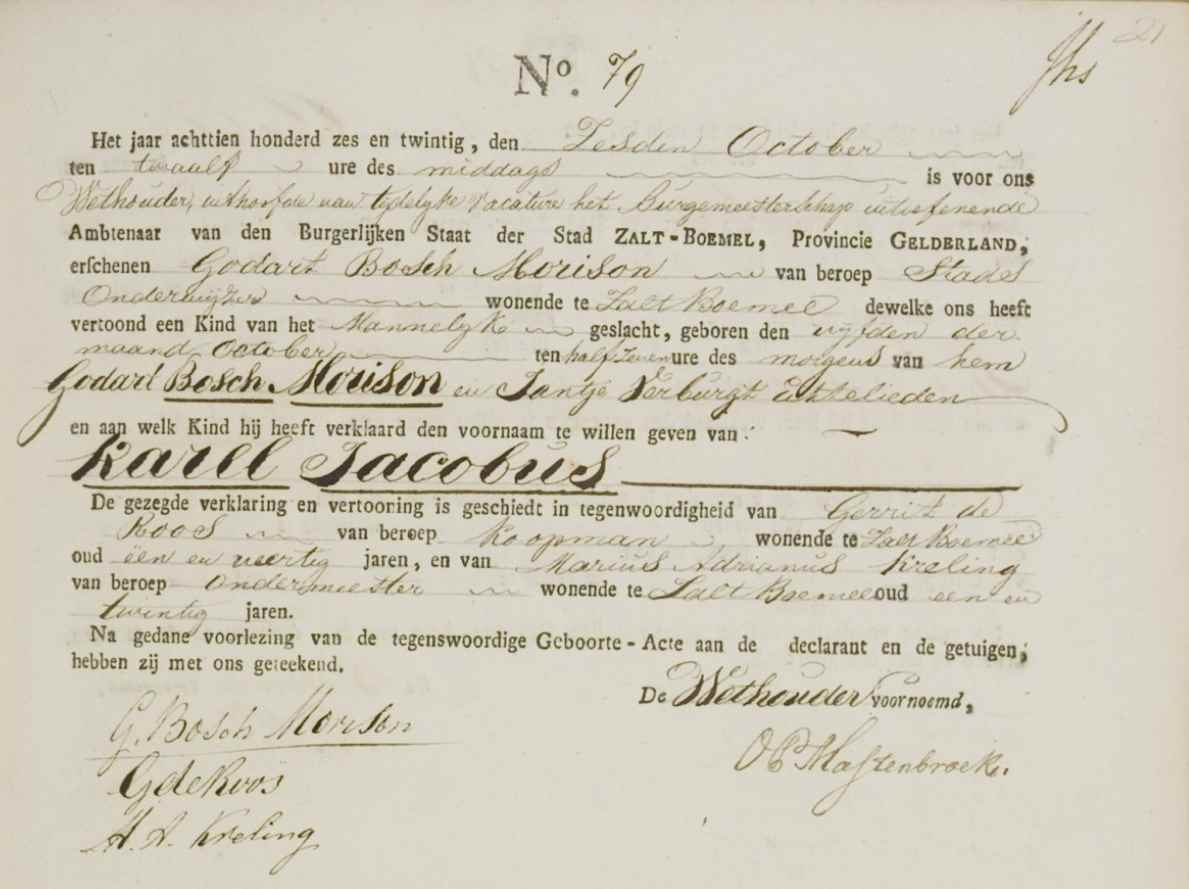 21
No. 79
Het jaar achttien honderd zes en twintig, den Zesden October
ten twaalf ure des middags is voor ons
Wethouder, uit hoofde van tydelyke vacature het Burgemeesterschap uitoefenende
Ambtenaar van den Burgerlijken Staat der Stad ZALT-BOEMEL, Provincie GELDERLAND,
erschenen Godart Bosch Morison van beroep Stads
Onderwijzer wonende te Zalt Boemel dewelke ons heeft
vertoond een Kind van het Mannelyke geslacht, geboren den vyfden der
maand October ten half zeven ure des morgens van hem
Godart Bosch Morison en Jantje Verburgt Echtelieden
en aan welk Kind hij heeft verklaard den voornaam te willen geven van:
Karel Jacobus
De gezegde verklaring en vertooning is geschiedt in tegenwoordigheid van Gerrit de
Roos van beroep Koopman wonende te Zalt Boemel
oud een en veertig jaren, en van Marius Adrianus Kreling
van beroep ondermeester wonende te Zalt Boemel oud een en
twintig jaren.
Na gedane voorlezing van de tegenswoordige Geboorte-Acte aan de declarant en de getuigen,
hebben zij met ons geteekend.
De Wethouder voornoemd,
G. Bosch Morison
G de Roos
M. A. Kreling
Mastenbroek.